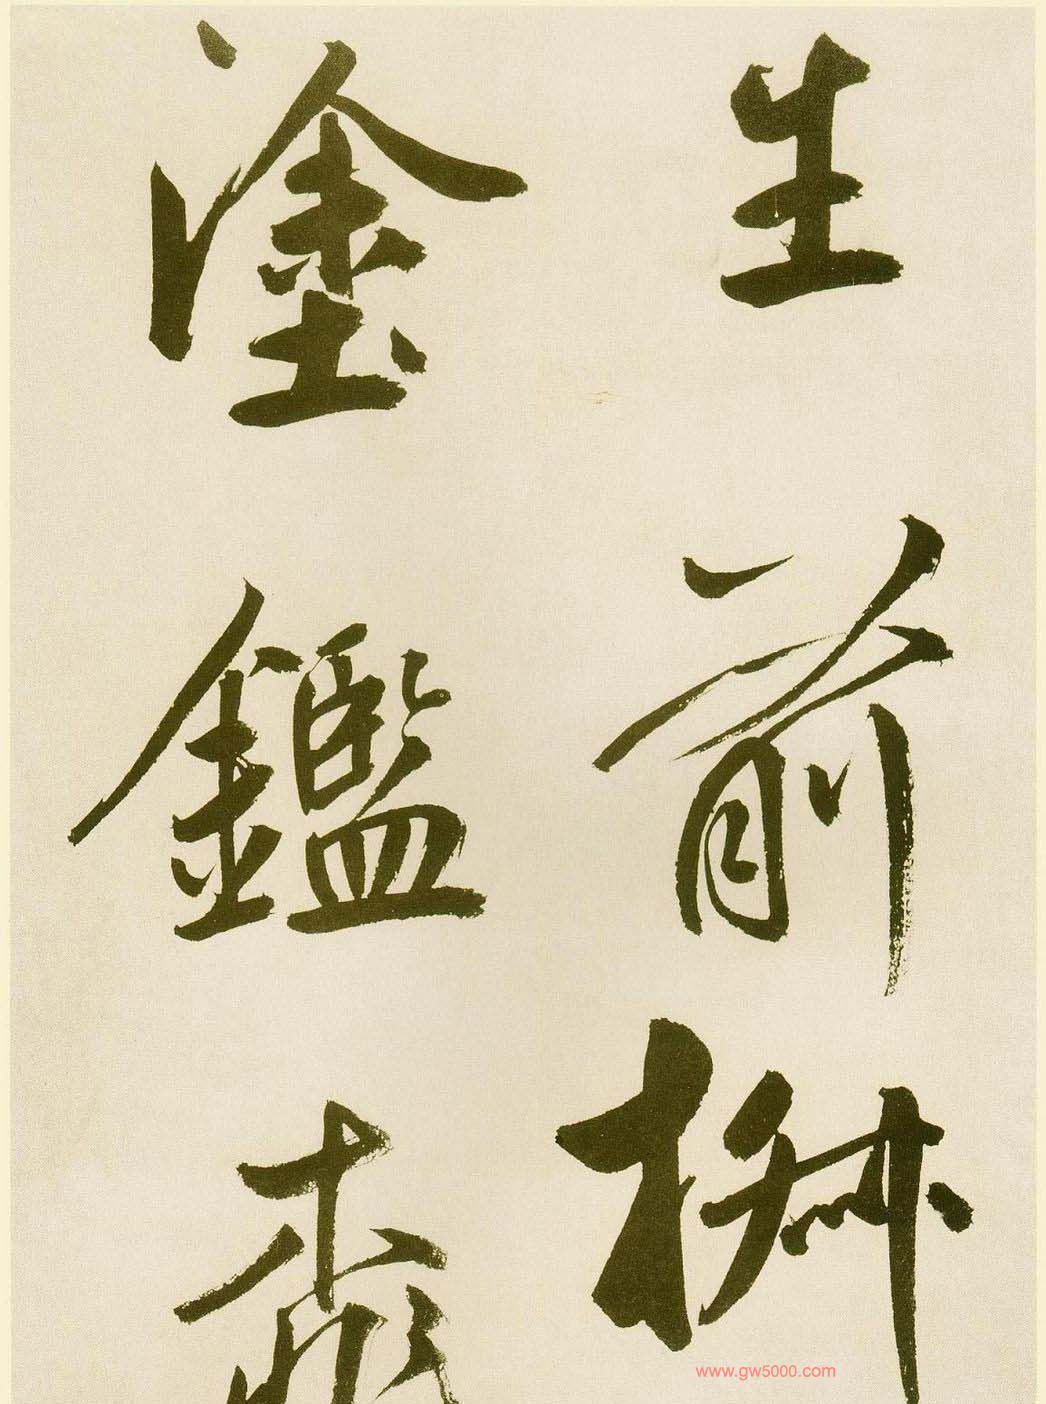 生前
塗鑑
www.gw5000.com